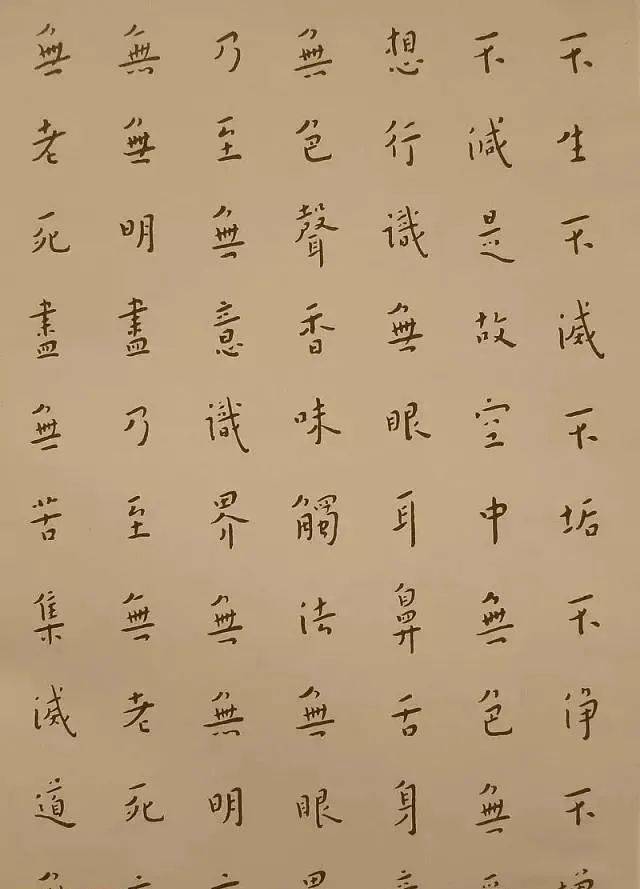 不生不滅不垢不淨不
不減是故空中無色無
想行識無眼耳鼻舌身
無色聲香味觸法無眼
乃至無意識界無無明
無無明盡乃至無老死
無老死盡無苦集滅道